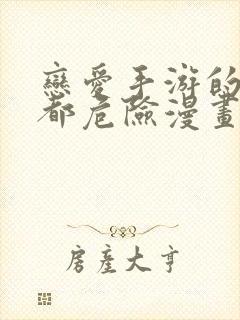 戀愛手游的
都危險漫畫
房產大亨